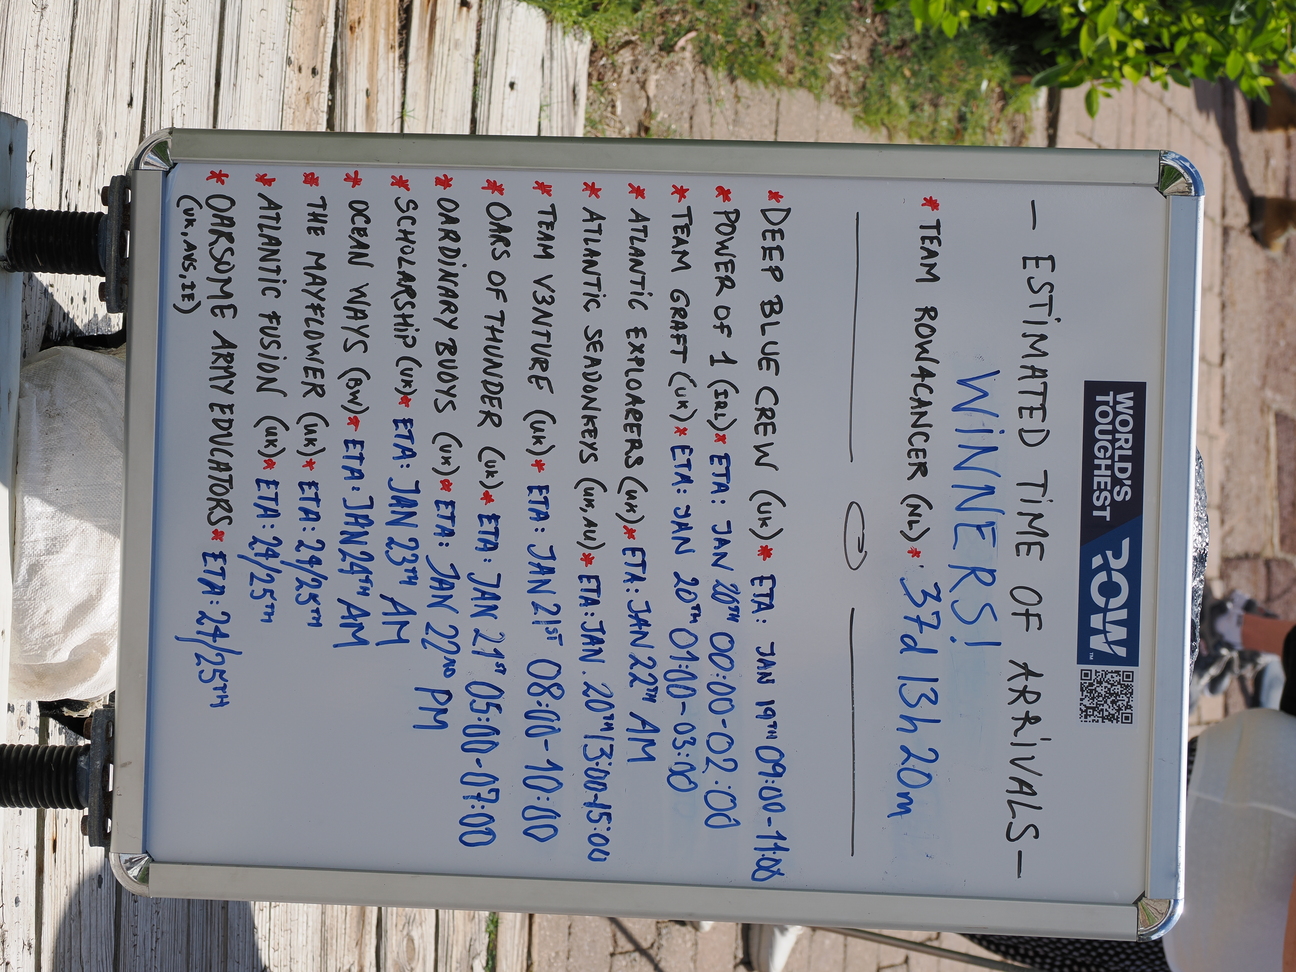 WORLD'S
TOUGHEST
ROW™
— ESTIMATED TIME OF ARRIVALS —
WINNERS!
* TEAM ROW4CANCER (NL) * 37d 13h 20m
* DEEP BLUE CREW (UK) * ETA: JAN 19TH 09:00-11:00
* POWER OF 1 (IRL) * ETA: JAN 20TH 00:00-02:00
* TEAM GRAFT (UK) * ETA: JAN 20TH 01:00-03:00
* ATLANTIC EXPLOARERS (UK) * ETA: JAN 22TH AM
* ATLANTIC SEADONKEYS (UK, AU) * ETA: JAN. 20TH 13:00-15:00
* TEAM V3NTURE (UK) * ETA: JAN 21ST 08:00-10:00
* OARS OF THUNDER (UK) * ETA: JAN 21ST 05:00-07:00
* OARDINARY BUOYS (UK) * ETA: JAN 22ND PM
* SCHOLARSHIP (UK) * ETA: JAN 23TH AM
* OCEAN WAYS (BW) * ETA: JAN 24TH AM
* THE MAYFLOWER (UK) * ETA: 24/25TH
* ATLANTIC FUSION (UK) * ETA: 24/25TH
* OARSOME ARMY EDUCATORS * ETA: 24/25TH
(UK, AUS, IE)